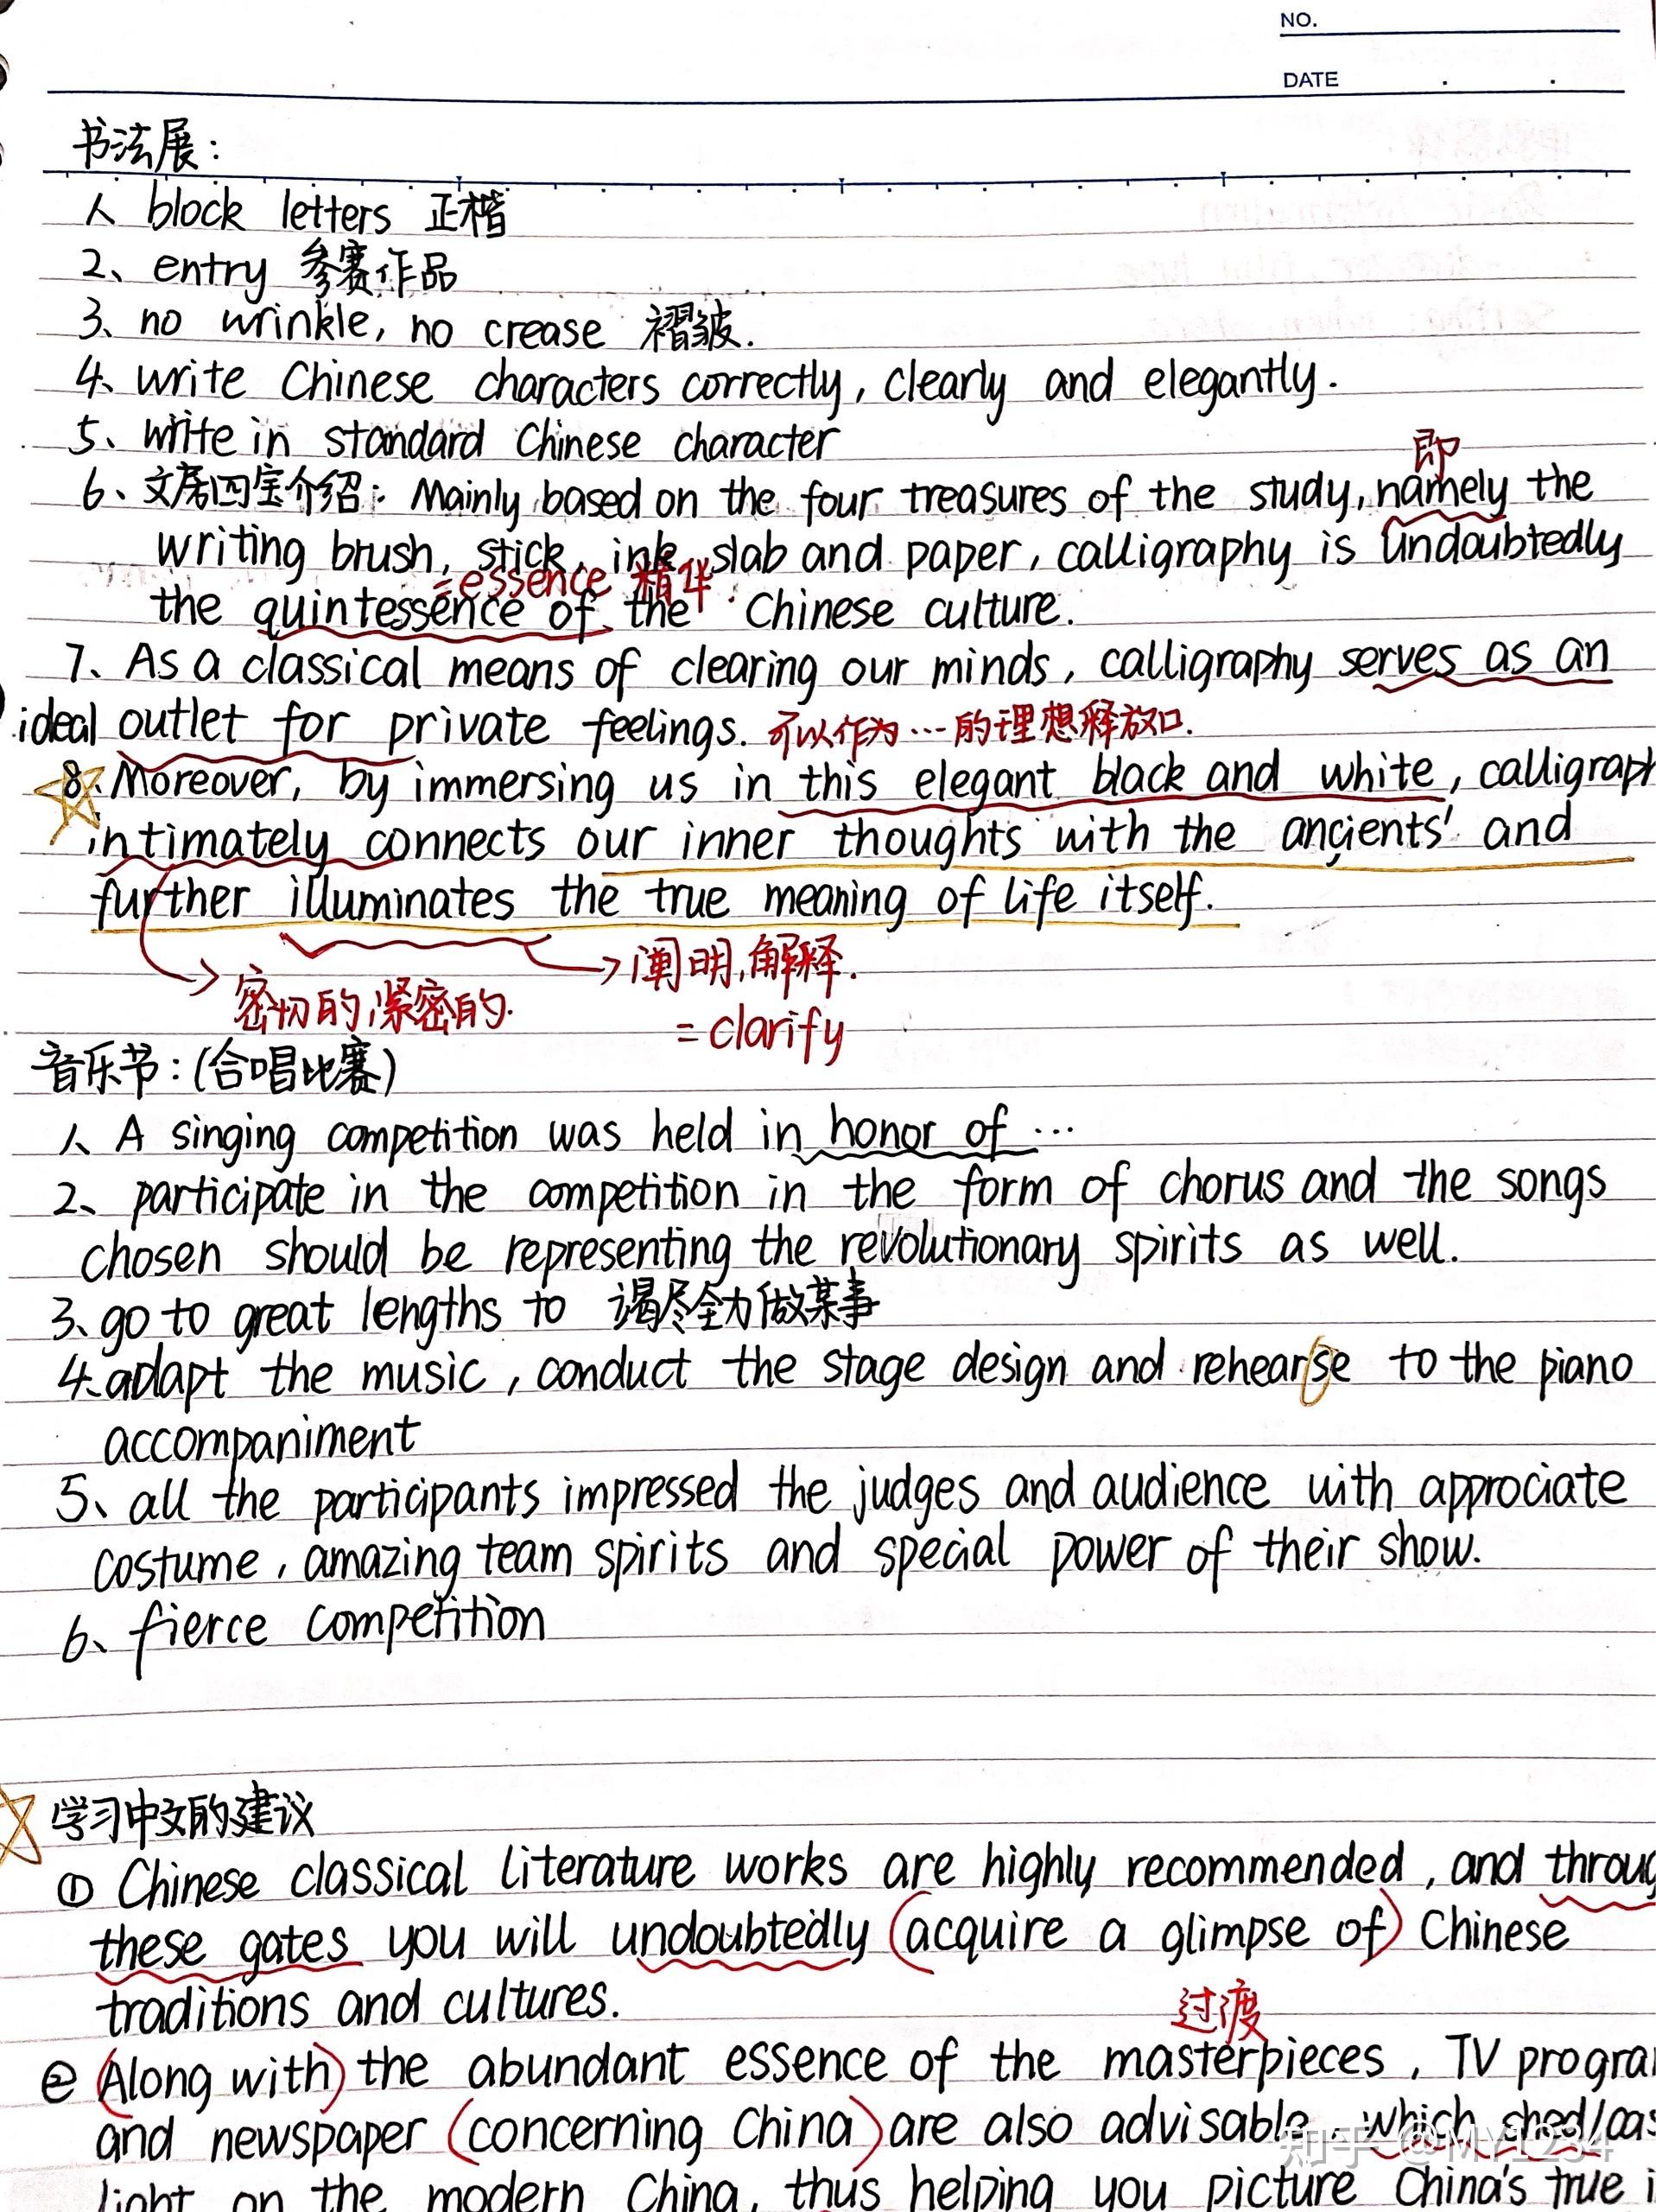 NO.
DATE
书法展：
1、block letters 正楷
2、entry 参赛作品
3、no wrinkle, no crease 褶皱.
4、write Chinese characters correctly, clearly and elegantly.
5、write in standard Chinese character
即
6、文房四宝介绍：Mainly based on the four treasures of the study, namely the
writing brush, stick, ink slab and paper, calligraphy is undoubtedly
=essence 精华.
the quintessence of the Chinese culture.
7、As a classical means of clearing our minds, calligraphy serves as an
ideal outlet for private feelings. 可以作为…的理想释放口.
8、Moreover, by immersing us in this elegant black and white, calligraph
intimately connects our inner thoughts with the ancients' and
further illuminates the true meaning of life itself.
密切的,紧密的.
阐明,解释.
= clarify
音乐节：(合唱比赛)
1、A singing competition was held in honor of …
2、participate in the competition in the form of chorus and the songs
chosen should be representing the revolutionary spirits as well.
3、go to great lengths to 竭尽全力做某事
4、adapt the music, conduct the stage design and rehearse to the piano
accompaniment
5、all the participants impressed the judges and audience with approciate
costume, amazing team spirits and special power of their show.
6、fierce competition
学习中文的建议
① Chinese classical literature works are highly recommended, and throug
these gates you will undoubtedly (acquire a glimpse of) Chinese
traditions and cultures.
过渡
② (Along with) the abundant essence of the masterpieces, TV progra
and newspaper (concerning China) are also advisable, which shed/cas
light on the modern China, thus helping you picture China's true i
知乎 @MY1234